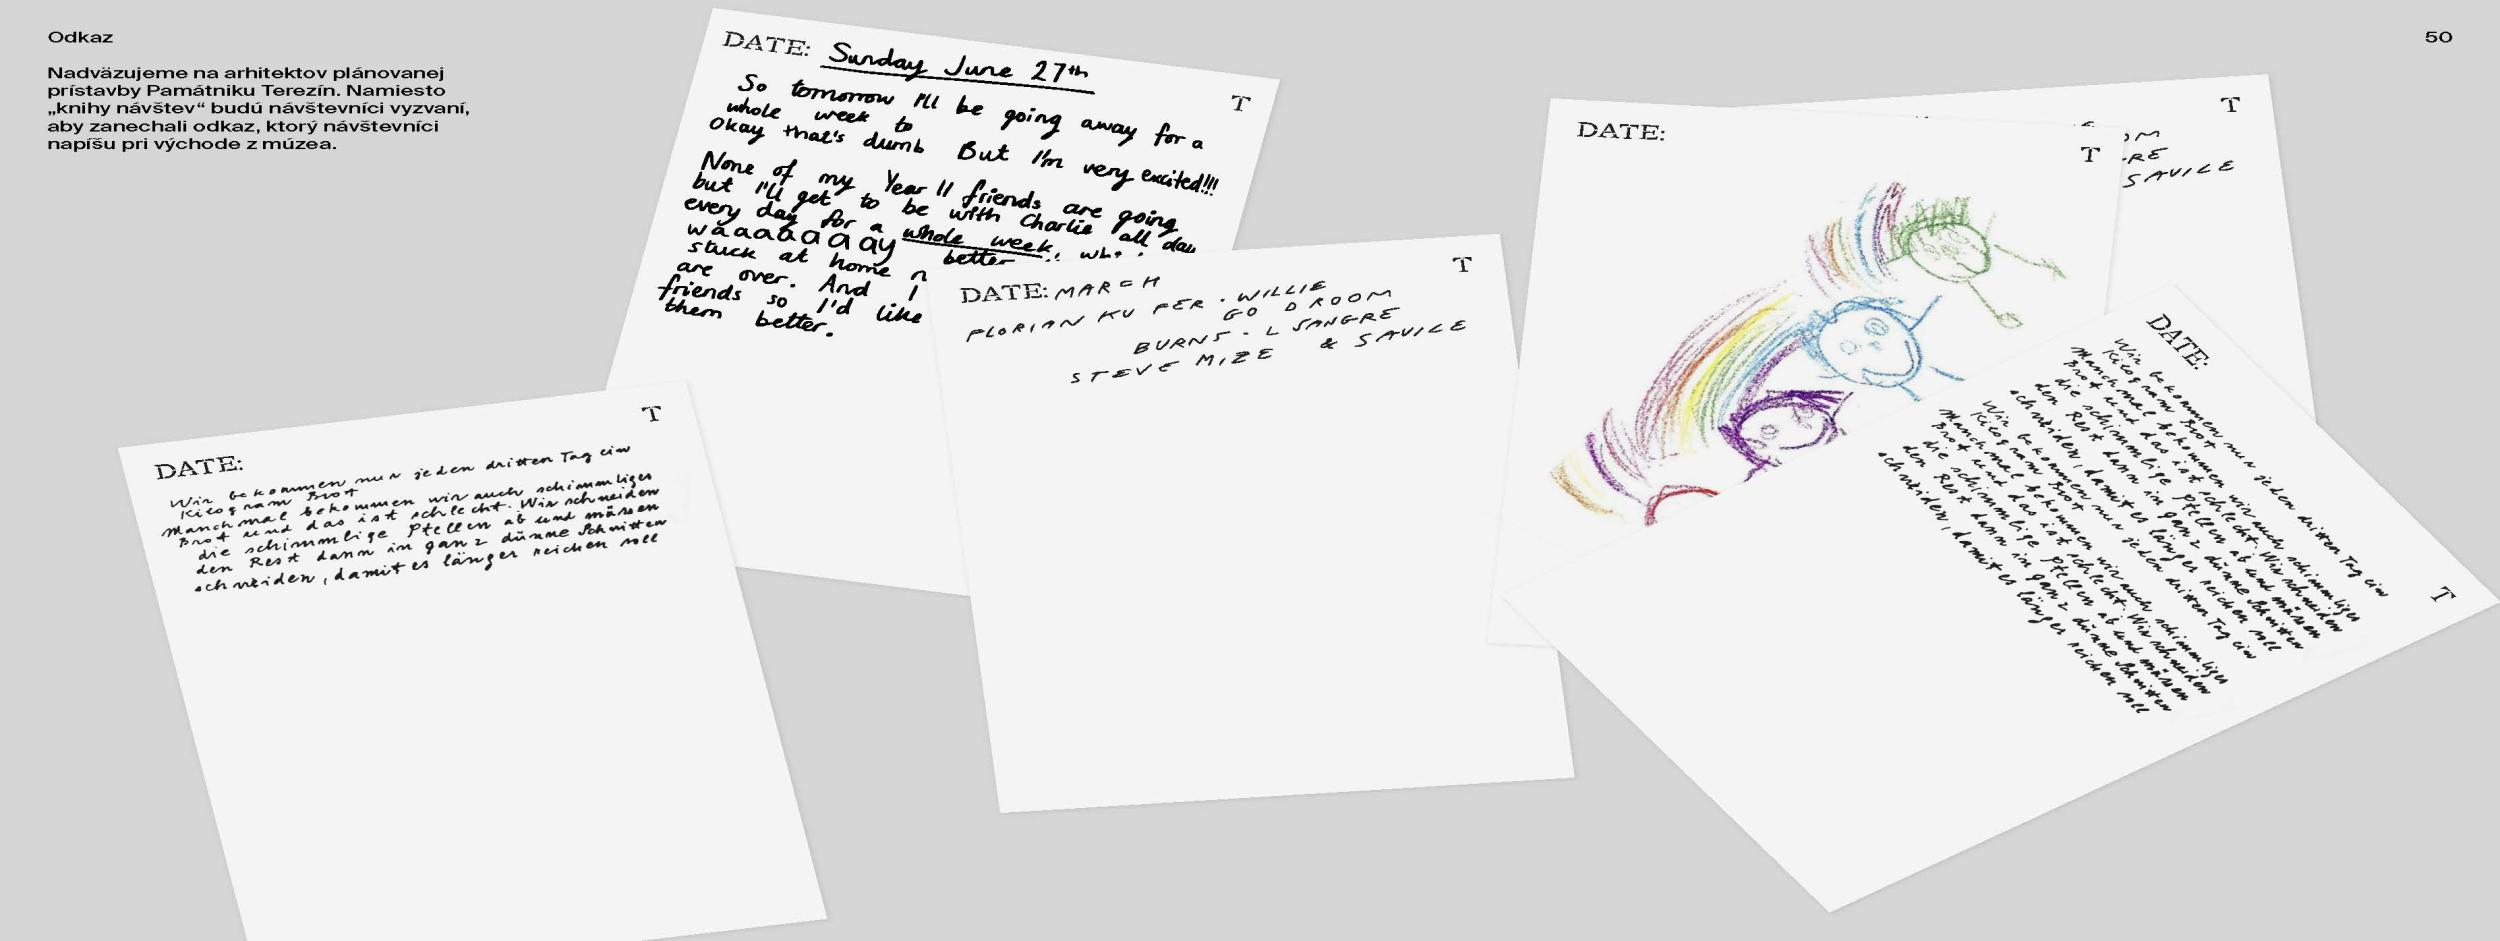 Odkaz
50
Nadväzujeme na arhitektov plánovanej
prístavby Památniku Terezín. Namiesto
„knihy návštev“ budú návštevníci vyzvaní,
aby zanechali odkaz, ktorý návštevníci
napíšu pri východe z múzea.
DATE: Sunday June 27th
T
So tomorrow I'll be going away for a
whole week to
Okay that's dumb But I'm very excited!!!
None of my Year 11 friends are going
but I'll get to be with Charlie all day
every day for a whole week,
waaaaaaay better
stuck at home
are over. And I
friends so I'd like
them better.
DATE: MARCH
T
FLORIAN KU FER . WILLIE
GO D ROOM
BURNS - L SANGRE
STEVE MIZE & SAVILE
DATE:
T
Wir bekommen nur jeden dritten Tag ein
Kilogram Brot
Manchmal bekommen wir auch schimmliges
Brot und das ist schlecht. Wir schneiden
die schimmlige Stellen ab und müssen
den Rest dann in ganz dünne Schnitten
schneiden, damit es länger reichen soll
DATE:
T
T
OM
RE
SAVILE
DATE:
T
Wir bekommen nur jeden dritten Tag ein
Kilogram Brot
Manchmal bekommen wir auch schimmliges
Brot und das ist schlecht. Wir schneiden
die schimmlige Stellen ab und müssen
den Rest dann in ganz dünne Schnitten
schneiden, damit es länger reichen soll
Wir bekommen nur jeden dritten Tag ein
Kilogram Brot
Manchmal bekommen wir auch schimmliges
Brot und das ist schlecht. Wir schneiden
die schimmlige Stellen ab und müssen
den Rest dann in ganz dünne Schnitten
schneiden, damit es länger reichen soll